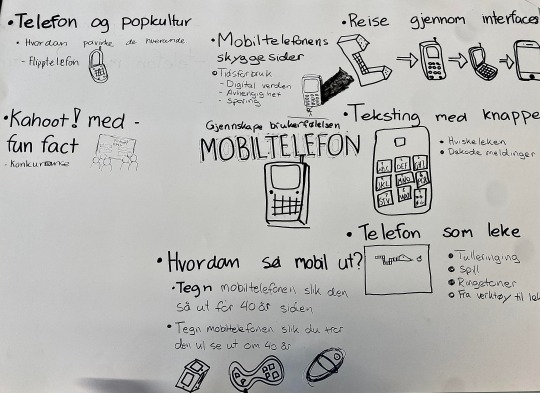 •Telefon og popkultur
• Hvordan påvirke de hverandre
- Flipptelefon
•Kahoot! med -
fun fact
- Konkurranse
•Mobiltelefonens
skyggesider
Tidsforbruk
- Digital verden
- Avhengighet
- Sporing
Gjennskape brukerfølelsen
MOBILTELEFON
•Reise gjennom interfaces
•Teksting med knappe
• Hviskeleken
• Dekode meldinger
ABC DEF
JKL MNO
•Telefon som leke
Tulleringing
Spill
Ringetoner
Fra verktøy til lek
•Hvordan så mobil ut?
•Tegn mobiltelefonen slik den
så ut for 40 år siden
•Tegn mobiltelefonen slik du tror
den vil se ut om 40 år